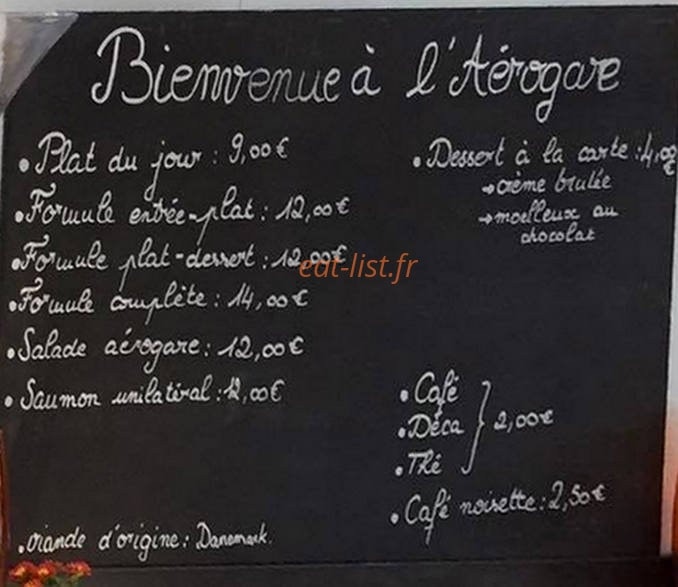 Bienvenue à l'Aérogare
• Plat du jour : 9,00€
• Formule entrée-plat : 12,00€
• Formule plat-dessert : 12,00€
• Formule complète : 14,00€
• Salade aérogare : 12,00€
• Saumon unilatéral : 12,00€
• Dessert à la carte : 4,00€
→ crème brulée
→ moelleux au
chocolat
eat-list.fr
• Café
• Déca } 2,00€
• Thé
• Café noisette : 2,50€
. viande d'origine : Danemark.